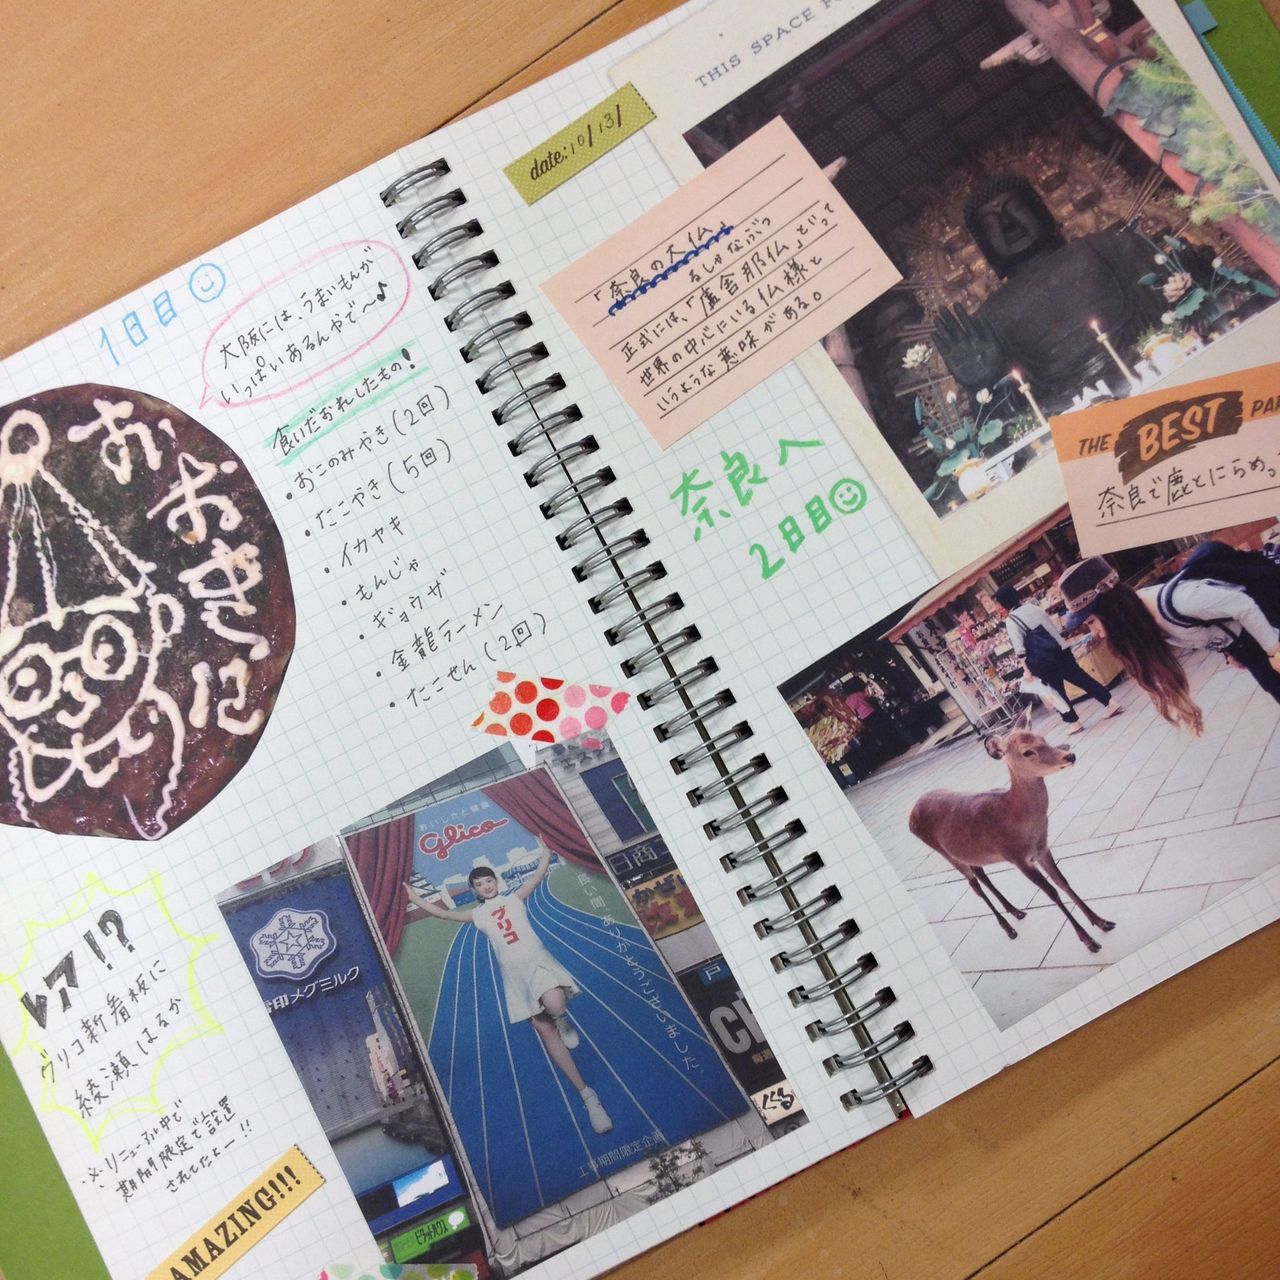 1日目
大阪には、うまいもんが
いっぱいあるんやで〜♪
食いだおれしたもの!
・おこのみやき(2回)
・たこやき(5回)
・イカヤキ
・もんじゃ
・ギョウザ
・金龍ラーメン
・たこせん(2回)
おおきに
レア!?
グリコ新看板に
綾瀬はるか
※リニューアル中で
期間限定で設置
されてたよー!!
AMAZING!!!
雪印メグミルク
おいしさと健康
glico
グリコ
長い間ありがとうございました。
工事期間限定企画
日商
かぜ
戸
くる
date: 10/13/
THIS SPACE
「奈良の大仏」
るしゃなぶつ
正式には、「盧舎那仏」といって
世界の中心にいる仏様と
いうような意味がある。
奈良へ
2日目
THE BEST
奈良で鹿とにらめっ